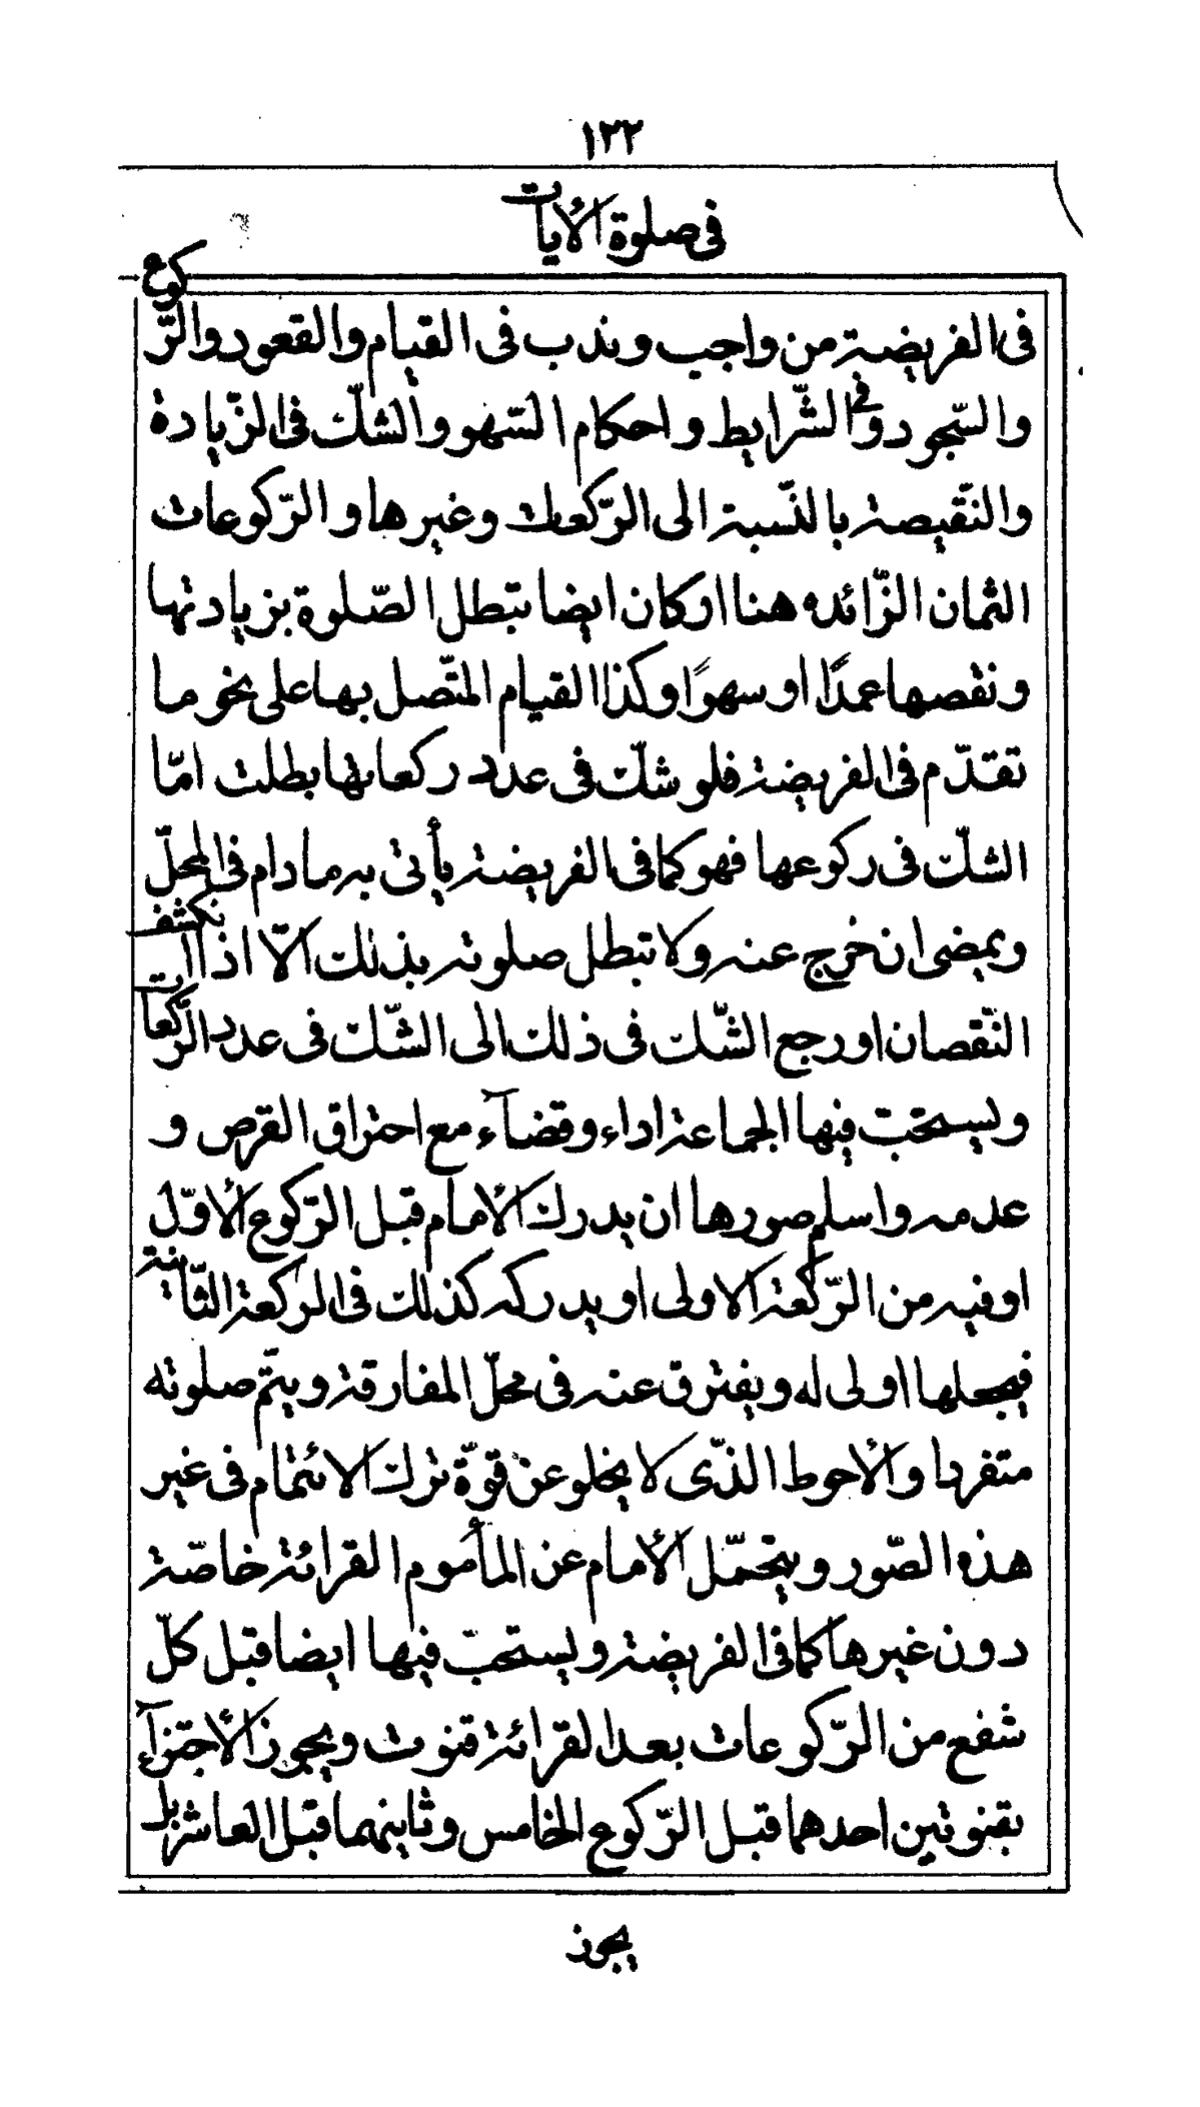 ١٢٢
فى صلوة الأيات
فى الفريضة من واجب وندب فى القيام والقعود والرّكوع
والسّجود وفى الشّرايط واحكام السّهو والشك فى الزّيادة
والنّقيصة بالنّسبة الى الرّكعات وغيرها والرّكوعات
الثمان الزّائده هنا اركان ايضا تبطل الصّلوة بزيادتها
ونقصها عمدًا او سهوًا وكذا القيام المتّصل بها على نحو ما
تقدّم فى الفريضة فلو شكّ فى عدد ركعاتها بطلت امّا
الشكّ فى ركوعها فهو كما فى الفريضة يأتى به مادام فى المحلّ
ويمضى ان خرج عنه ولا تبطل صلوته بذلك الّا اذا انكشف
النّقصان او رجع الشّك فى ذلك الى الشّك فى عدد الرّكعات
ويستحبّ فيها الجماعة اداء وقضآء مع احتراق القرص و
عدمه واسلم صورها ان يدرك الأمام قبل الرّكوع الأوّل
او فيه من الرّكعة الاولى او يدركه كذلك فى الركعة الثّانية
فيجعلها اولى له ويفترق عنه فى محلّ المفارقة ويتمّ صلوته
متفردا والأحوط الذّى لا يخلو عن قوّة ترك الائتمام فى غير
هذه الصّور ويتحمّل الأمام عن المأموم القرائة خاصّة
دون غيرها كما فى الفريضة ويستحبّ فيها ايضا قبل كلّ
شفع من الرّكوعات بعد القرائة قنوت ويجوز الأجتزآء
بقنوتين احدهما قبل الرّكوع الخامس وثانيهما قبل العاشر بل
يجوز